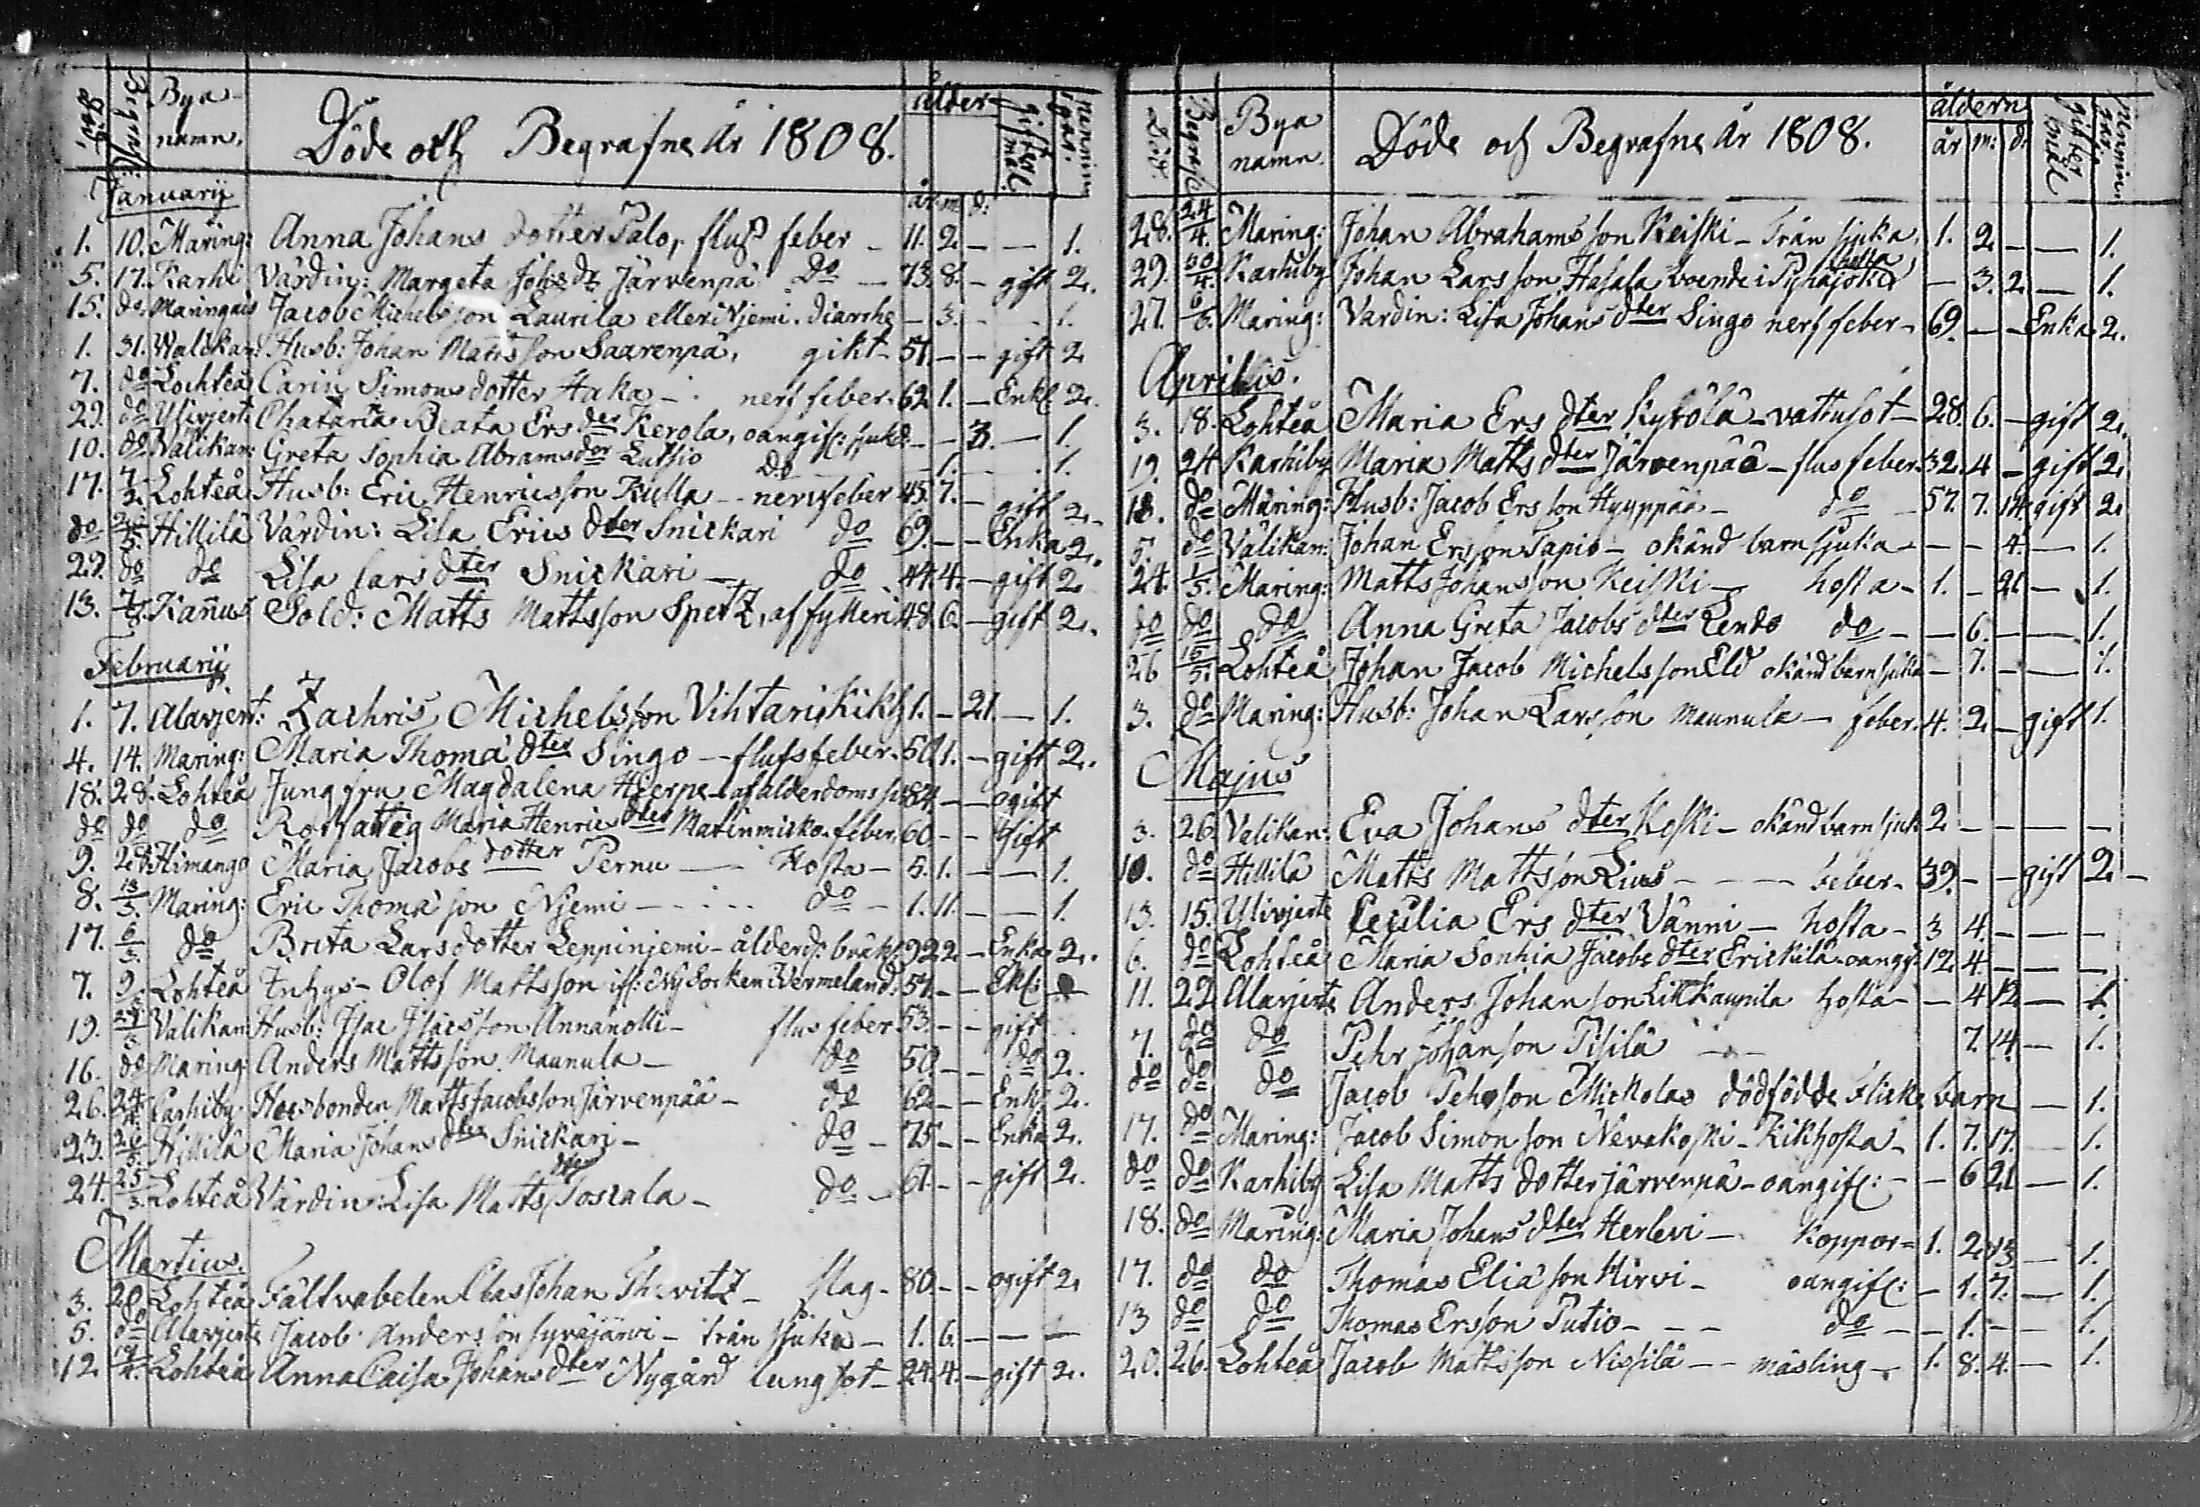 Bya
namn.
Döde och Begrafne År 1808.
ålder
giftermål
Januarij
år m d:
1. 10. Maring: Anna Johans dotter Palo, fluss feber - 11. 2. - - 1.
5. 17. Karhi Värdin: Margeta Johs dr Järvenpä Do - 73. 8. - gift 2.
15. do. Maringais Jacob Michelsson Laurila eller Njemi. diarrhe - 3. - - 1.
1. 31. Walikan: Husb: Johan Mattsson Saarenpä, gikt - 51. - - gift 2
7. do Lochteå Carin Simons dotter Haka - nerf feber. 62 1. - Enkl 2.
29. do Ylivjerte Chatarina Beata Ers dter Kerola, oangif: sjukd: - - 3. - 1.
10. do Välikan: Greta Sophia Abramsdter Lussio Do - 1. - - 1.
17. 7/2. Lohteå Husb: Eric Henricsson Kulla - nerffeber 45. 7. - gift 2.
do Hillilä Värdin: Lisa Erics dter Snickari do 69. - - Enka 2.
29. do do Lisa Lars dter Snickari - do 44. 4. - gift 2
13. 7/8. Kañus Sold: Matts Mattsson Spetz, af fylleri 48. 6. - gift 2.
Februarij
1. 7. Alavjert: Zachris Michelsson Vihtari, kikh 1. - 21. - 1.
4. 14. Maring: Maria Thoma dter Singo - flussfeber. 50. 1. - gift 2.
18. 28. Lohteå Jungfru Magdalena Hierpe - af alderdoms 84. - - ogift
do do do Rotfattig Maria Henric dter Matinmicko. feber. 60 - - Gift
9. 28. Himango Maria Jacobs dotter Pernu - Hosta - 5. 1. - - 1.
8. 13/3. Maring: Eric Thoma son Njemi - do - 1. 11. - - 1.
17. 6/3. do Brita Larsdotter Leppinjemi - ålderds: bräkl. 92 2 - Enka 2.
7. 9. Lohteå Inhys - Olof Mattsson if: Ny Socken i Vermeland. 51. - - Ekl: -
19. Välikan: Husb: Isac Isacsson Annanolli - flus feber 53. - - gift
16. do Maring: Anders Mattsson Maunula - do 50. - - do 2.
26. 24/4. Karhiby. Husbonden Matts Jacobsson Järvenpää - do 62 - - Enk: 2.
23. Hillilä Maria Johans dter Snickari - do - 75 - - Enka 2.
24. 25/3. Lohteå Värdin: Lisa Matts dter Toscala - do - 61. - - gift 2.
Martius.
3. 20. Lohteå Fältvabelen Clas Johan slag - 80. - - ogift 2
5. do Alavjerte Jacob Andersson Syväjärvi - trån sjuka - 1. 6. - - -
12. Lohteå Anna Caisa Johans dter Nygård lungsot - 24. 4. - gift 2.
Bya
namn.
Döde och Begrafne År 1808.
åldern
år m: d:
giftermål
28. 24/4. Maring: Johan Abrahamsson Keiski - trån sjuka, 1. 2 - - 1.
29. 30/4. Karhiby Johan Larsson Hasala, boende i Pyhäjoki hosta - 3. 2 - 1.
27. 6/6. Maring: Värdin: Lisa Johans dter Singo nerf feber - 69. - - Enka 2.
Aprilis.
3. 18. Lohteå Maria Ers dter Kyrölä - vattusot - 28. 6. - gift 2.
19. 24 Karhiby Maria Matts dter Järvenpää - flus feber. 32. 4 - gift 2
18. do Maring: Husb: Jacob Ersson Hyyppää - do - 57. 7. 14. gift 2
5. do Välikan: Johan Ersson Tapio - okänd barn sjuka - - - 4. - 1.
24. 1/5. Maring: Matts Johansson Keiski - hosta - 1. - 21. - 1.
do do do Anna Greta Jacobs dter Lendo do - - 6. - - 1.
26 Lohteå Johan Jacob Michelsson Eld okänd barn sjuka - 7. - - 1.
3. do Maring: Husb: Johan Larsson Maunula - feber. 4. 2. - gift 1.
Majus
3. 26. Välikan: Eva Johans dter Koski - okänd barn sjuk 2 - - - -
10. do Hillilä Matts Mattsson Lius - - - feber - 39. - - gift 2. -
13. 15. Ylivjerte Cecilia Ers dter Vänni - hosta - 3 4. - - -
6. do Lohteå Maria Sophia Jacobs dter Erickilä - oangif: 12. 4. - - -
11. 22 Alavjerte Anders Johansson Littkaupila hosta - - 4 12 - 1.
7. do do Pehr Johanson Pisilä - - 7. 14. - 1.
do do do Jacob Pehrson Mickolas dödfödde Flicke barn - 1.
17. do Maring: Jacob Simonson Nevakoski - Kikhosta - 1. 7. 17. 1.
do do Karhiby Lisa Matts dotter Järvenpä - oangif: - - 6 21 - 1.
18. do Maring: Maria Johans dter Herlevi - Koppor - 1. 2. 13 - 1.
17. do do Thomas Elia son Hirvi - oangif: - 1. 7. - 1.
13 do do Thomas Ersson Putio - - - do - - 1. - - 1.
20. 26. Lohteå Jacob Mattsson Nissilä - - mäsling - 1. 8. 4. - 1.